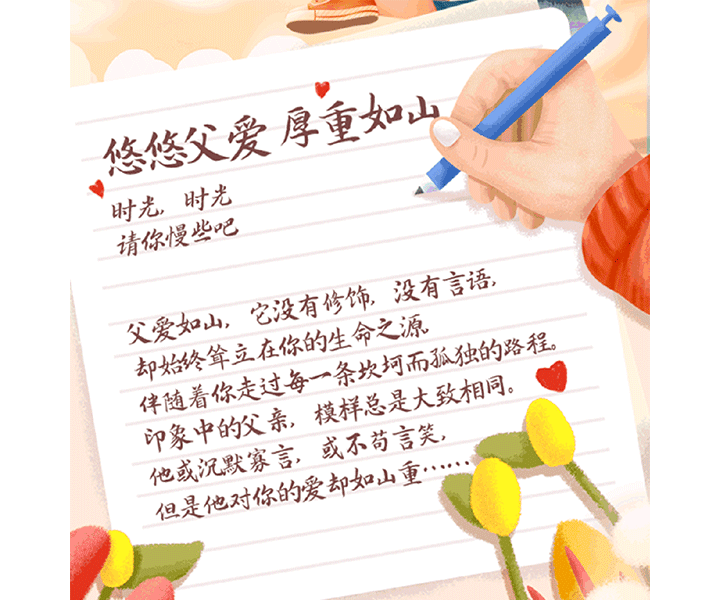 悠悠父爱 厚重如山
时光，时光
请你慢些吧
父爱如山，它没有修饰，没有言语，
却始终耸立在你的生命之源，
伴随着你走过每一条坎坷而孤独的路程。
印象中的父亲，模样总是大致相同。
他或沉默寡言，或不苟言笑，
但是他对你的爱却如山重……